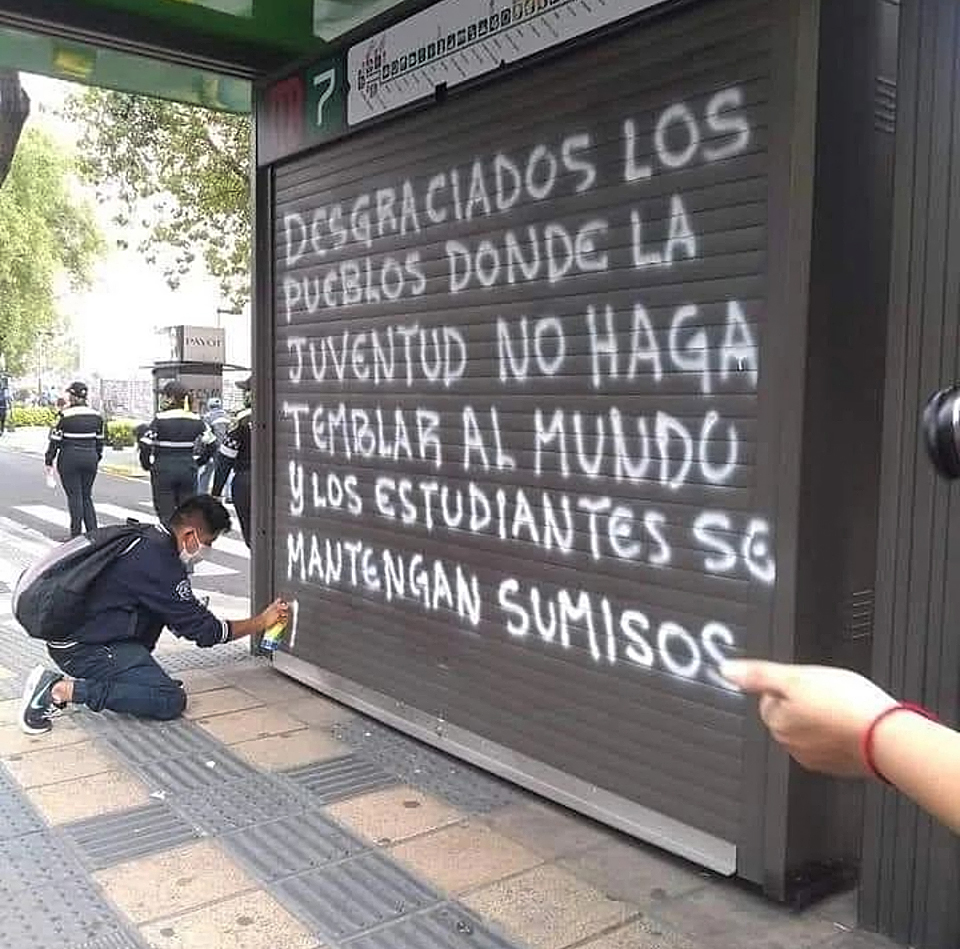 7
PAYOT
DESGRACIADOS LOS
PUEBLOS DONDE LA
JUVENTUD NO HAGA
TEMBLAR AL MUNDO
Y LOS ESTUDIANTES SE
MANTENGAN SUMISOS